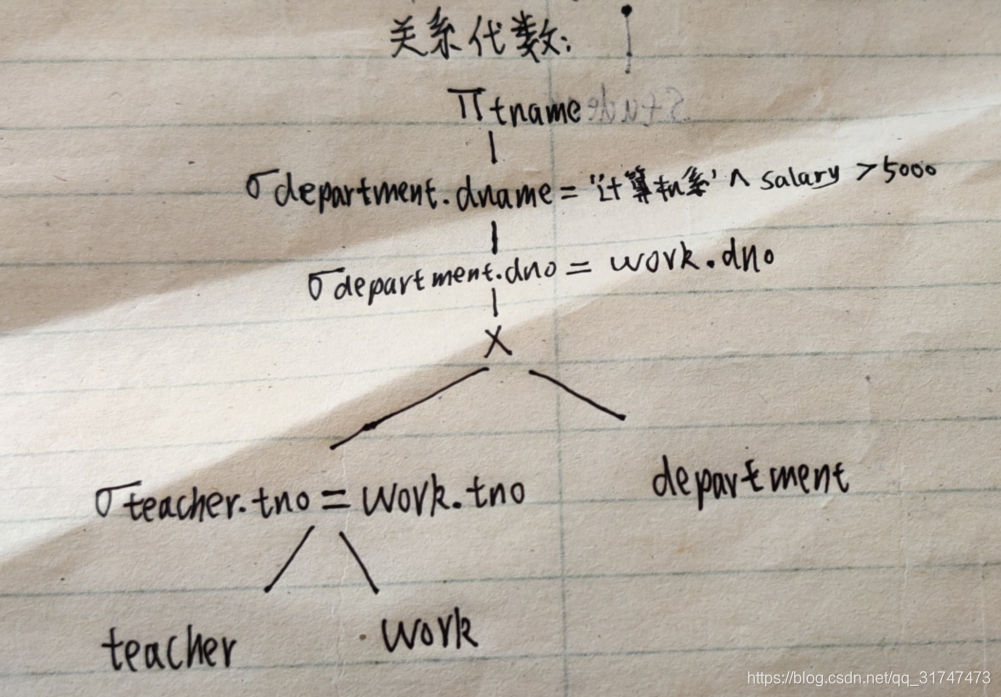 关系代数:
π tname
σ department.dname = '计算机系' ∧ salary > 5000
σ department.dno = work.dno
×
σ teacher.tno = work.tno
department
teacher
work
https://blog.csdn.net/qq_31747473